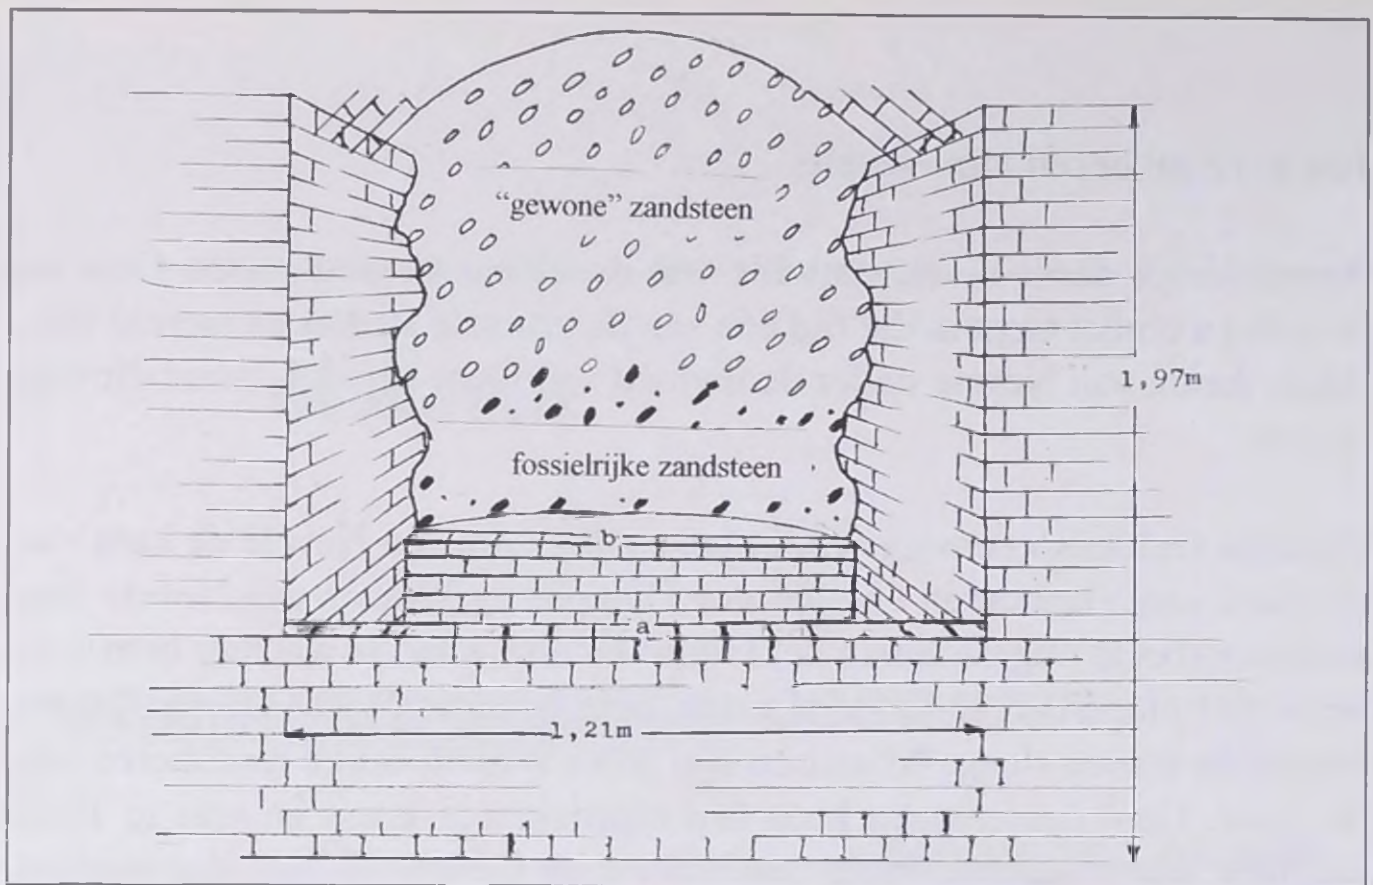 “gewone” zandsteen
1,97m
fossielrijke zandsteen
b
a
1,21m